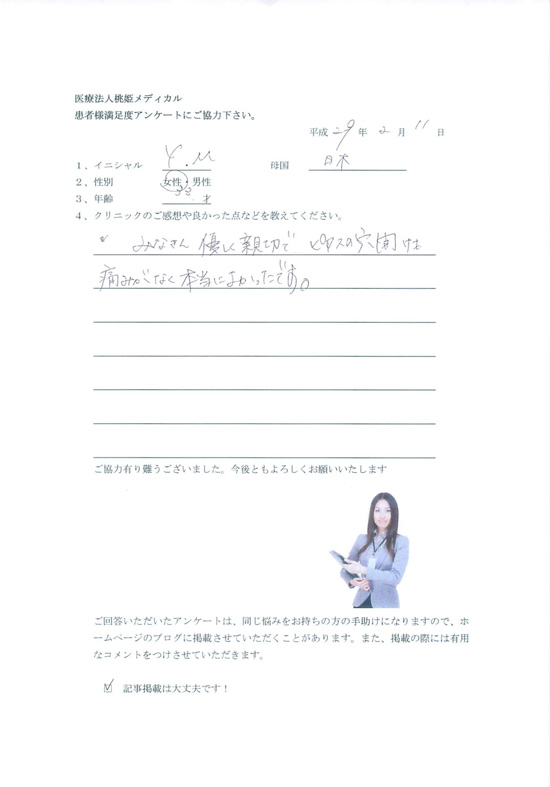 医療法人桃姫メディカル
患者様満足度アンケートにご協力下さい。
平成 29 年 2 月 11 日
1、イニシャル Y.M 母国 日本
2、性別 女性・男性
3、年齢 33 才
4、クリニックのご感想や良かった点などを教えてください。
みなさん 優しく親切で ピアスの穴開けも
痛みがなく本当によかったです。
ご協力有り難うございました。今後ともよろしくお願いいたします
ご回答いただいたアンケートは、同じ悩みをお持ちの方の手助けになりますので、ホ
ームページのブログに掲載させていただくことがあります。また、掲載の際には有用
なコメントをつけさせていただきます。
☑ 記事掲載は大丈夫です！